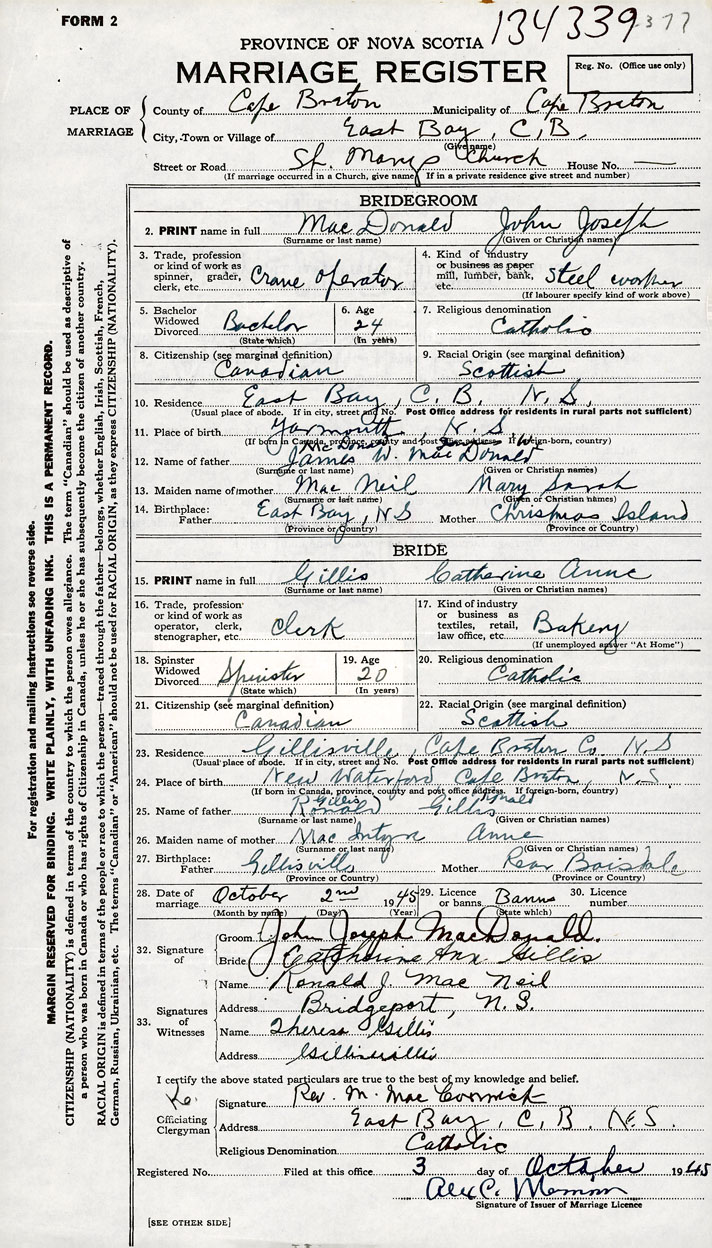 FORM 2
134339
377
PROVINCE OF NOVA SCOTIA
MARRIAGE REGISTER
Reg. No. (Office use only)
PLACE OF MARRIAGE
County of Cape Breton Municipality of Cape Breton
City, Town or Village of East Bay, C, B,
(Give name)
Street or Road St. Marys Church House No. —
(If marriage occurred in a Church, give name If in a private residence give street and number)
BRIDEGROOM
2. PRINT name in full MacDonald John Joseph
(Surname or last name) (Given or Christian names)
3. Trade, profession or kind of work as spinner, grader, clerk, etc. Crane operator
4. Kind of industry or business as paper mill, lumber, bank, etc. Steel worker
(If labourer specify kind of work above)
5. Bachelor Widowed Divorced Bachelor
(State which)
6. Age 24
(In years)
7. Religious denomination
Catholic
8. Citizenship (see marginal definition)
Canadian
9. Racial Origin (see marginal definition)
Scottish
10. Residence East Bay, C. B. N. S,
(Usual place of abode. If in city, street and No. Post Office address for residents in rural parts not sufficient)
11. Place of birth Yarmouth, N. S,
(If born in Canada, province, county and post office address. If foreign-born, country)
12. Name of father James W. MacDonald
(Surname or last name) (Given or Christian names)
13. Maiden name of mother Mac Neil Mary Sarah
(Surname or last name) (Given or Christian names)
14. Birthplace: Father East Bay, N S Mother Chrismas Island
(Province or Country) (Province or Country)
BRIDE
15. PRINT name in full Gillis Catherine Anne
(Surname or last name) (Given or Christian names)
16. Trade, profession or kind of work as operator, clerk, stenographer, etc. Clerk
17. Kind of industry or business as textiles, retail, law office, etc. Bakery
(If unemployed answer "At Home")
18. Spinster Widowed Divorced Spinster
(State which)
19. Age 20
(In years)
20. Religious denomination
Catholic
21. Citizenship (see marginal definition)
Canadian
22. Racial Origin (see marginal definition)
Scottish
23. Residence Gillisville, Cape Breton Co. N. S
(Usual place of abode. If in city, street and No. Post Office address for residents in rural parts not sufficient)
24. Place of birth New Waterford, Cape Breton, N. S.
(If born in Canada, province, county and post office address. If foreign-born, country)
25. Name of father Ronald Gillis
(Surname or last name) (Given or Christian names)
26. Maiden name of mother Mac Intyre Anne
(Surname or last name) (Given or Christian names)
27. Birthplace: Father Gillisville Mother Rear Boisdale
(Province or Country) (Province or Country)
28. Date of marriage October 2nd 1945
(Month by name) (Day) (Year)
29. Licence or banns Banns
(State which)
30. Licence number
32. Signature of
Groom John Joseph MacDonald.
Bride Catherine Ann Gillis
33. Signatures of Witnesses
Name Ronald J. Mac Neil
Address Bridgeport, N. S.
Name Theresa Gillis
Address
I certify the above stated particulars are true to the best of my knowledge and belief.
Officiating Clergyman
Signature Rev. M. Mac Cormick
Address East Bay, C, B. N. S.
Religious Denomination Catholic
Registered No. Filed at this office 3 day of October 1945
Alex C.
Signature of Issuer of Marriage Licence
[SEE OTHER SIDE]
For registration and mailing instructions see reverse side.
MARGIN RESERVED FOR BINDING. WRITE PLAINLY, WITH UNFADING INK. THIS IS A PERMANENT RECORD.
CITIZENSHIP (NATIONALITY) is defined in terms of the country to which the person owes allegiance. The term "Canadian" should be used as descriptive of
a person who was born in Canada or who has rights of Citizenship in Canada, unless he or she has subsequently become the citizen of another country.
RACIAL ORIGIN is defined in terms of the people or race to which the person—traced through the father—belongs, whether English, Irish, Scottish, French,
German, Russian, Ukrainian, etc. The terms "Canadian" or "American" should not be used for RACIAL ORIGIN, as they express CITIZENSHIP (NATIONALITY).